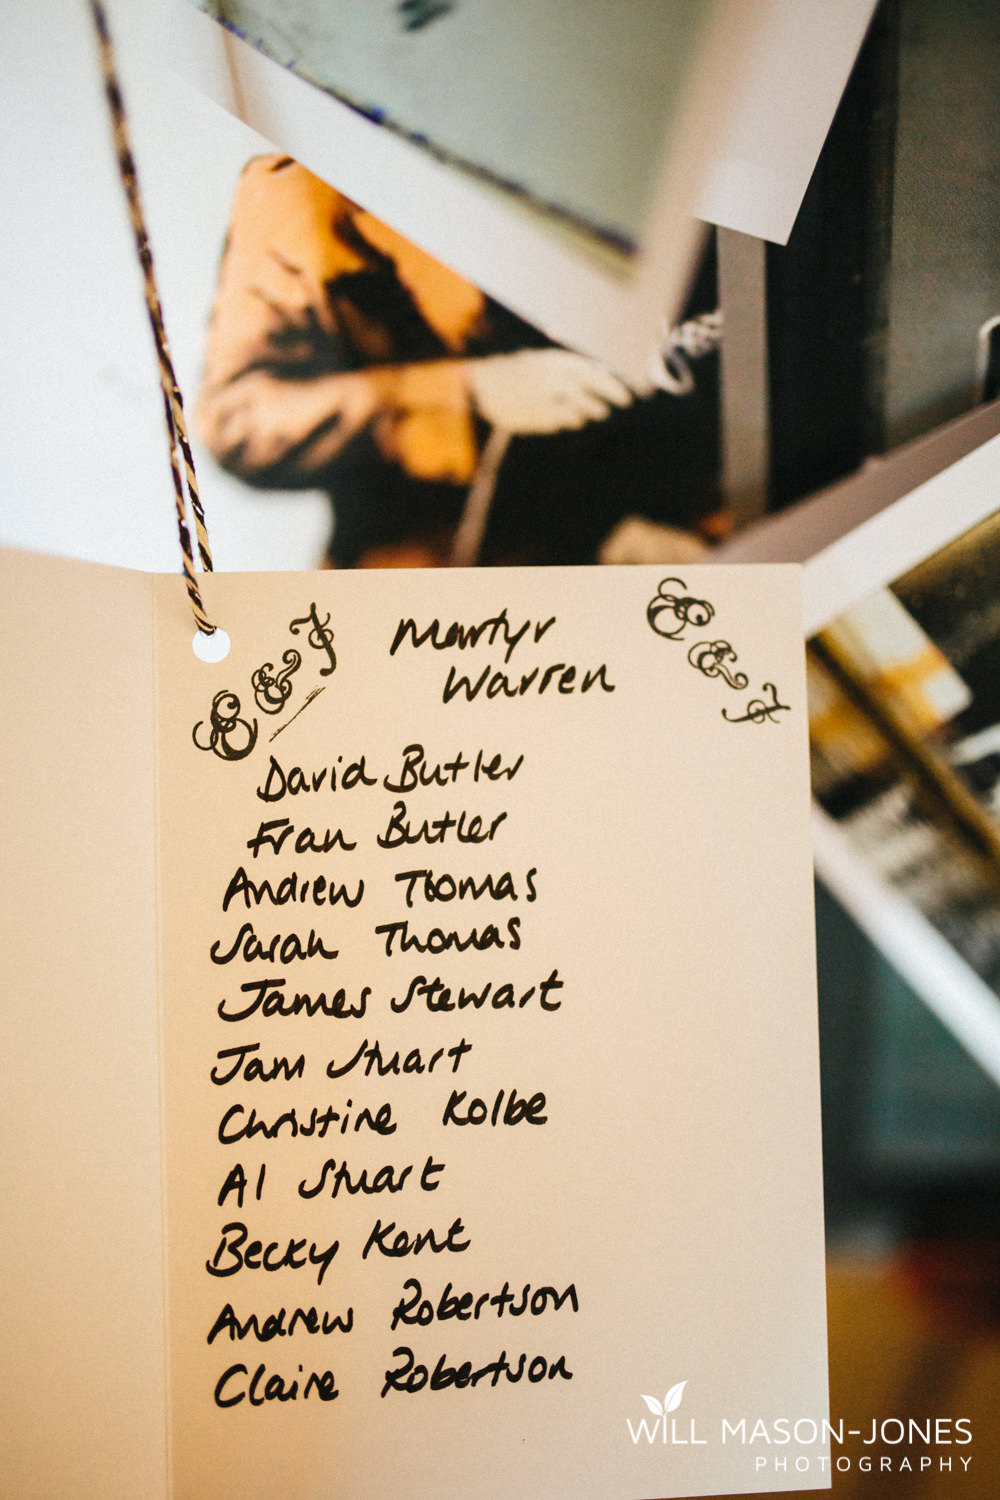 E & J
Martyr
Warren
E & J
David Butler
Fran Butler
Andrew Thomas
Sarah Thomas
James Stewart
Jam Stuart
Christine Kolbe
Al Stuart
Becky Kent
Andrew Robertson
Claire Robertson
WILL MASON-JONES
PHOTOGRAPHY